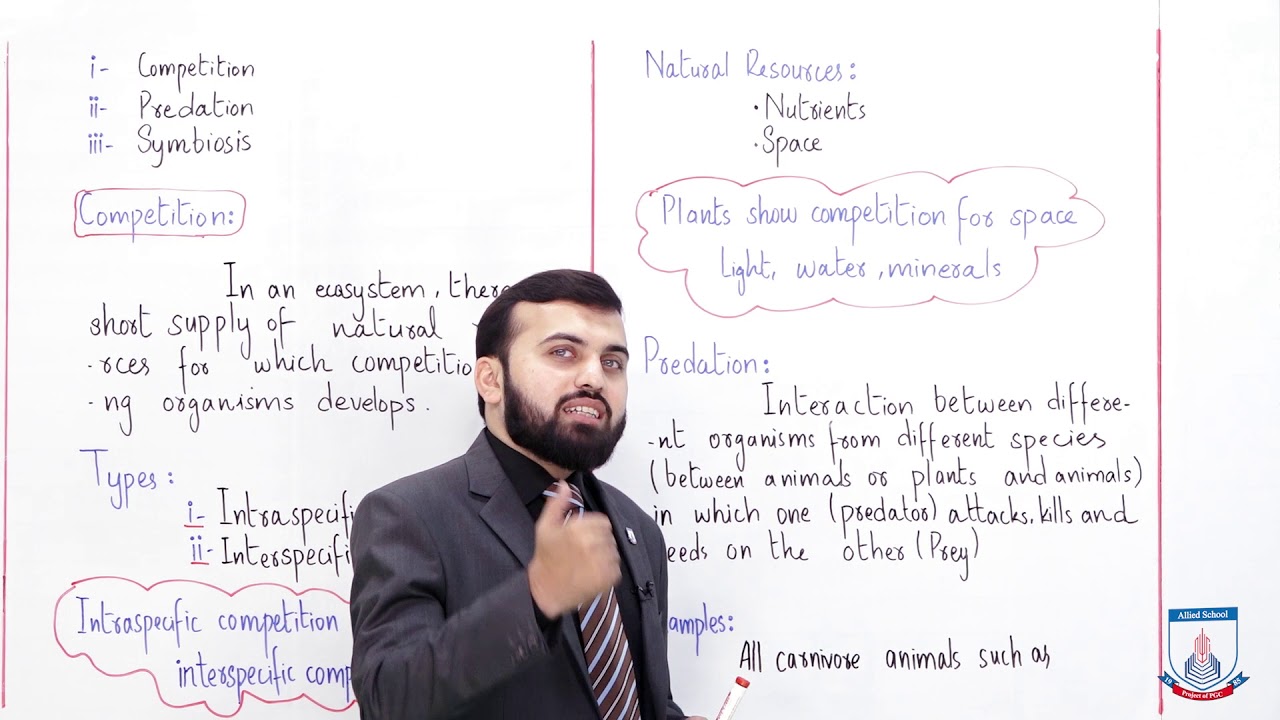 i- Competition
ii- Predation
iii- Symbiosis
Competition:
In an ecosystem, there
short supply of natural
rces for which competition
-ng organisms develops.
Types:
i- Intraspecific
ii- Interspecific
Intraspecific competition
interspecific comp
Natural Resources:
• Nutrients
• Space
Plants show competition for space
light, water, minerals
Predation:
Interaction between differe-
-nt organisms from different species
(between animals or plants and animals)
in which one (predator) attacks, kills and
eeds on the other (Prey)
amples:
All carnivore animals such as
Allied School
19 85
Project of PGC